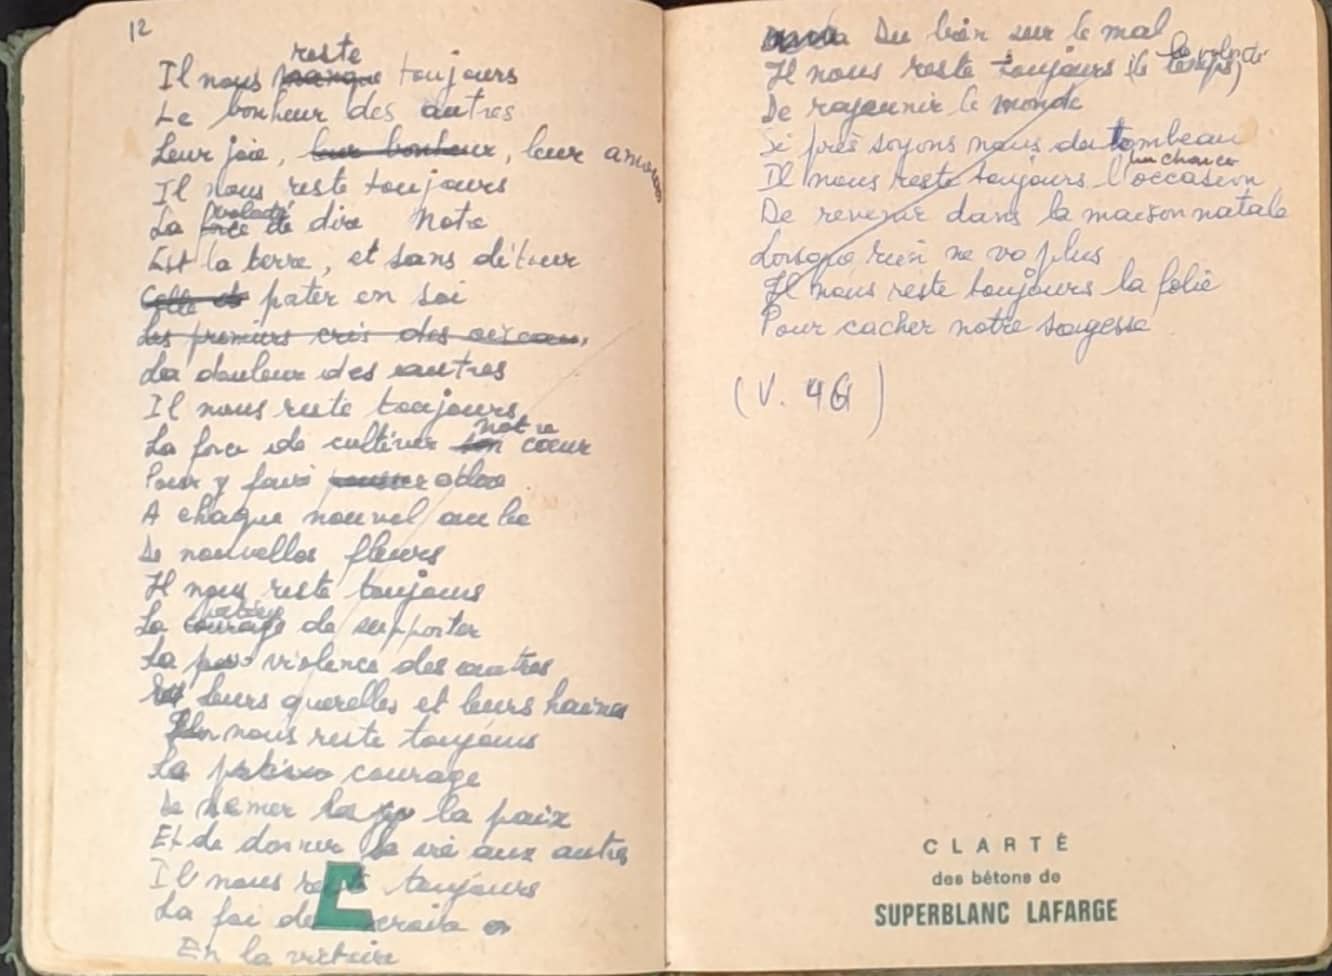 12
reste
Il nous manque toujours
Le bonheur des autres
Leur joie, leur bonheur, leur amour
Il nous reste toujours
volonté
La force de dire Notre
Est la terre, et sans détour
Celle et pater en soi
Les premiers cris des oiseaux,
La douleur des autres
Il nous reste toujours
notre
La force de cultiver son cœur
Pour y faire pousser
A chaque nouvel aube
De nouvelles fleurs
Il nous reste toujours
Le courage de supporter
La violence des autres
leurs querelles et leurs haines
nous reste toujours
Le courage
De la paix
Et de donner la vie aux autres
Il nous reste toujours
La foi de croire
En la victoire
Du bien sur le mal
la volonté
Il nous reste toujours le temps
De rajeunir le monde
Si près soyons nous du tombeau
un chance
Il nous reste toujours l'occasion
De revenir dans la maison natale
Lorsque rien ne va plus
Il nous reste toujours la folie
Pour cacher notre sagesse
(V. 4G)
CLARTÉ
des bétons de
SUPERBLANC LAFARGE